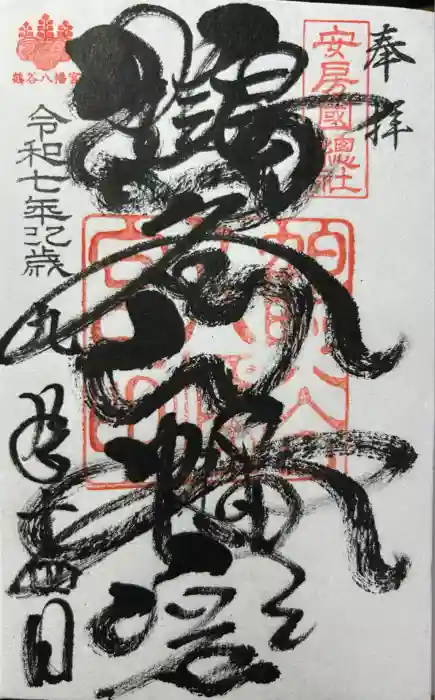 奉拝
安房國總社
鶴谷八幡宮
鶴谷八幡宮
令和七年乙巳歳
九月二十四日